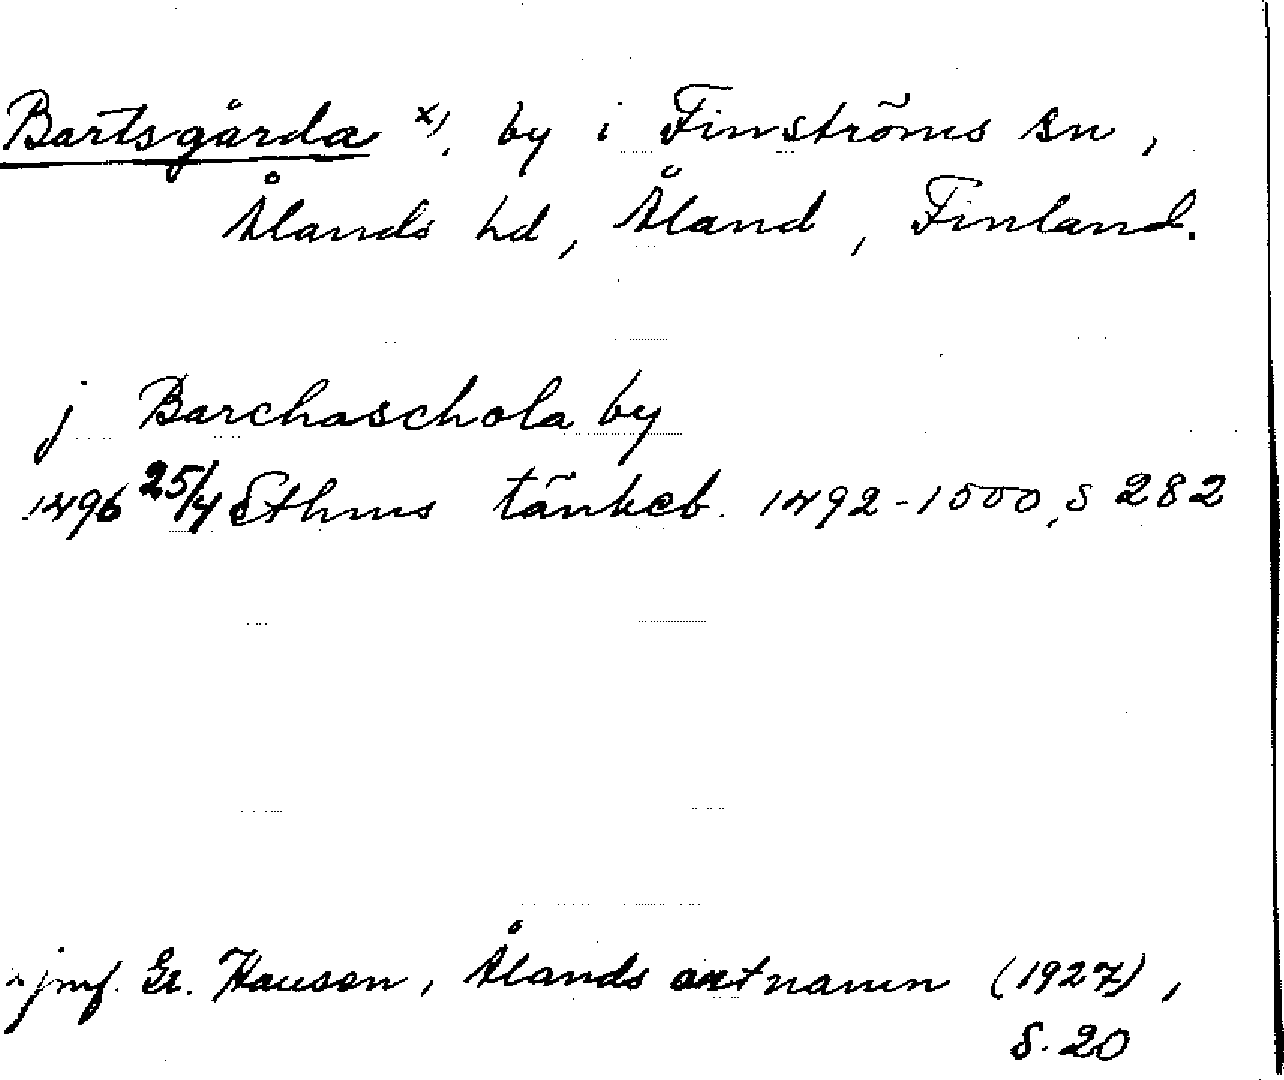 Bartsgårda x), by i Finströms sn,
Ålands hd, Åland, Finland.
j Barchaschola by
1496 25/4 Sthms tänkeb. 1492-1500, s 282
x jmf. Gr. Hausen, Ålands ortnamn (1927),
s. 20